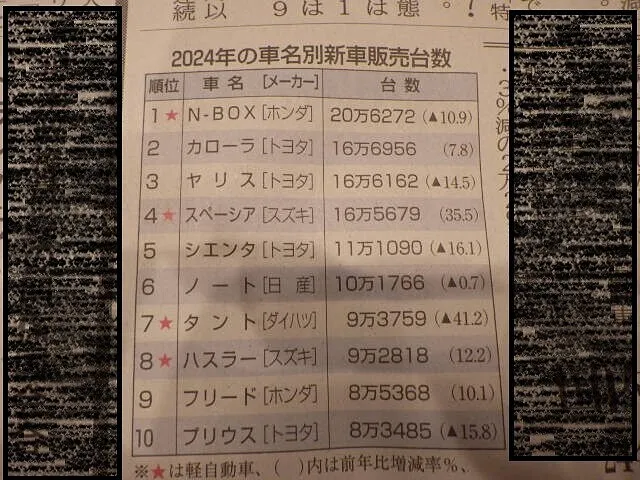 続以 9は1は態。! 特で
2024年の車名別新車販売台数
順位 車名 [メーカー] 台数
1★ N-BOX[ホンダ] 20万6272 (▲10.9)
2 カローラ[トヨタ] 16万6956 (7.8)
3 ヤリス[トヨタ] 16万6162 (▲14.5)
4★ スペーシア[スズキ] 16万5679 (35.5)
5 シエンタ[トヨタ] 11万1090 (▲16.1)
6 ノート[日産] 10万1766 (▲0.7)
7★ タント[ダイハツ] 9万3759 (▲41.2)
8★ ハスラー[スズキ] 9万2818 (12.2)
9 フリード[ホンダ] 8万5368 (10.1)
10 プリウス[トヨタ] 8万3485 (▲15.8)
※★は軽自動車、( )内は前年比増減率%、